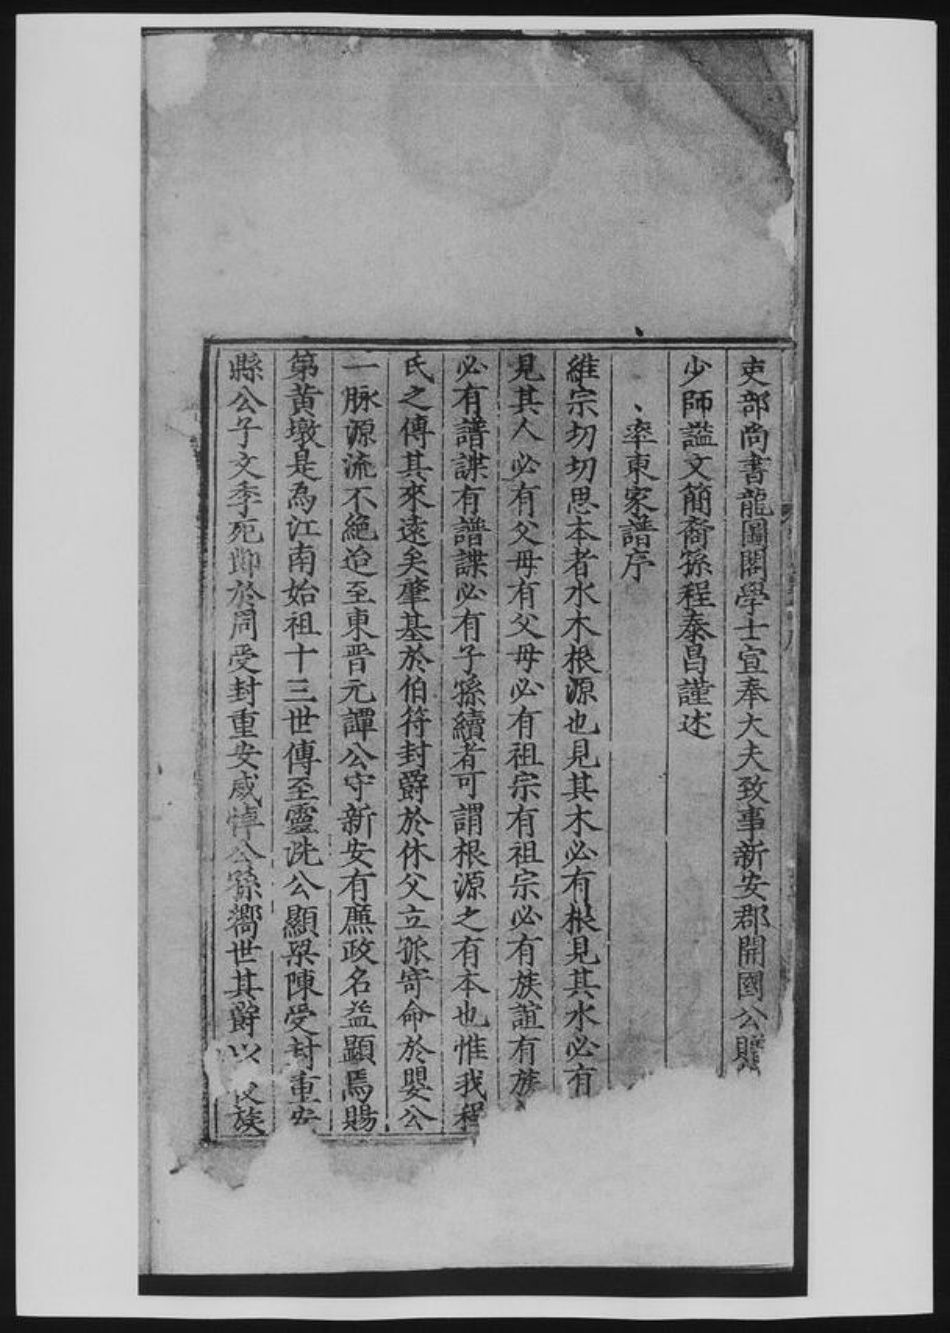 吏部尚書龍圖閣學士宣奉大夫致事新安郡開國公贈
少師謚文簡裔孫程泰昌謹述
率東家譜序
維宗切切思本者水木根源也見其木必有根見其水必有
見其人必有父母有父母必有祖宗有祖宗必有族誼有族
必有譜諜有譜諜必有子孫續者可謂根源之有本也惟我程
氏之傳其來遠矣肇基於伯符封爵於休父立孤寄命於嬰公
一脉源流不絕迨至東晉元譚公守新安有廉政名益顯焉賜
第黃墩是為江南始祖十三世傳至靈洗公顯梁陳受封重安
縣公子文季死節於周受封重安威悼公孫嚮世其爵以 族